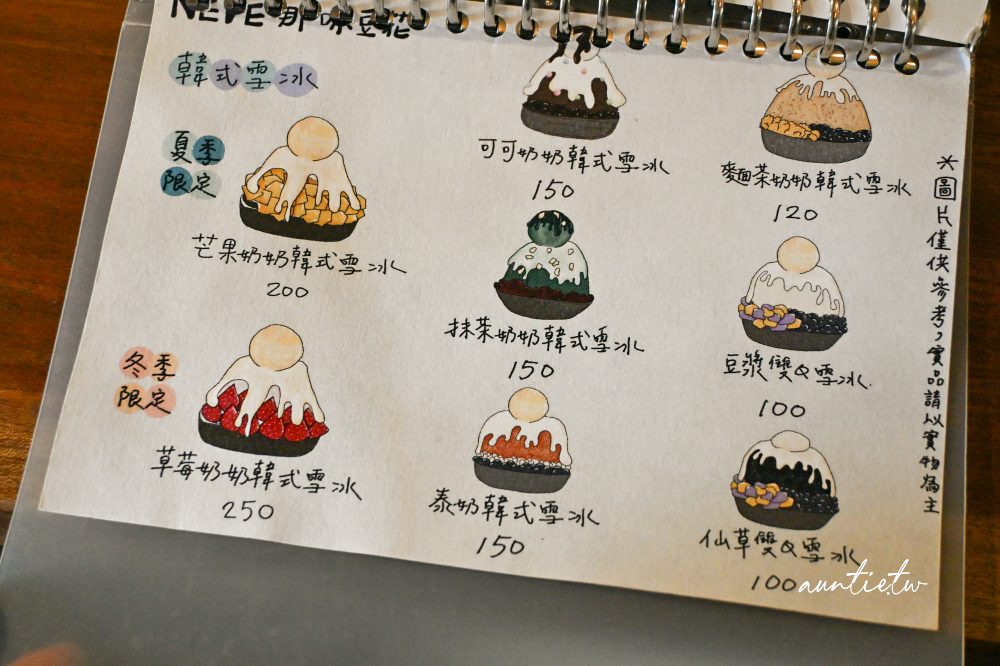 NEPE 那味豆花
韓式雪冰
夏季
限定
芒果奶奶韓式雪冰
200
冬季
限定
草莓奶奶韓式雪冰
250
可可奶奶韓式雪冰
150
抹茶奶奶韓式雪冰
150
泰奶韓式雪冰
150
麵茶奶奶韓式雪冰
120
豆漿雙Q雪冰
100
仙草雙Q雪冰
100
*圖片僅供參考,實品請以實物為主
auntie.tw